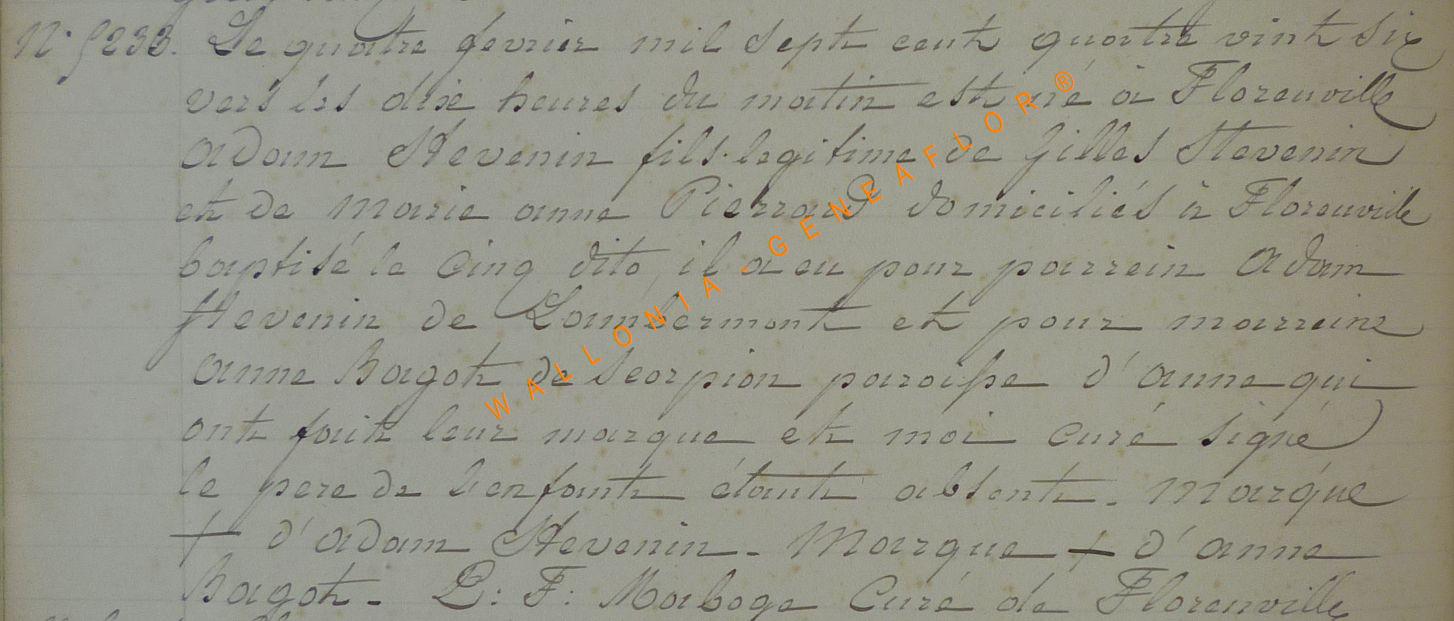 N° 5233. Le quatre fevrier mil sept cent quatre vint six
vers les dixe heures du matin est né à Florenville
adam Stevenin fils legitime de Gilles Stevenin
et de Marie anne Pierrad domiciliés à Florenville
baptisé le cinq dito, il a eu pour parrein adam
Stevenin de Lambermont et pour marreine
anne Bagot de Scorpion paroisse d'anne qui
ont fait leur marque et moi curé signé
le pere de l'enfant étant absent. Marque
+ d'adam Stevenin - Marque + d'anne
Bagot - P: F: Maboge Curé de Florenville
WALLONIA - GENEAFLOR®